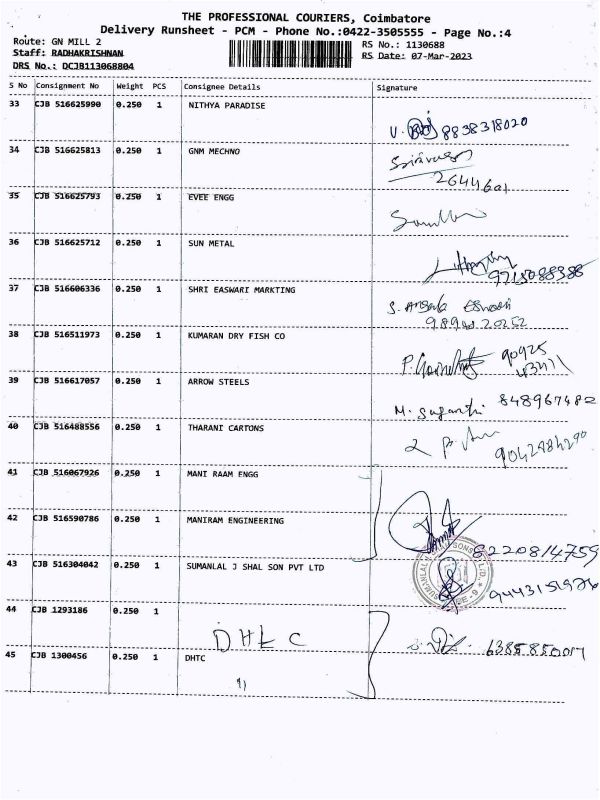 THE PROFESSIONAL COURIERS, Coimbatore
Delivery Runsheet - PCM - Phone No.:0422-3505555 - Page No.:4
Route: GN MILL 2
RS No.: 1130688
Staff: RADHAKRISHNAN
RS Date: 07-Mar-2023
DRS No.: DCJB113068804
S No Consignment No Weight PCS Consignee Details Signature
33 CJB 516625990 0.250 1 NITHYA PARADISE
8838318020
34 CJB 516625813 0.250 1 GNM MECHNO
2644601
35 CJB 516625793 0.250 1 EVEE ENGG
36 CJB 516625712 0.250 1 SUN METAL
9715088388
37 CJB 516606336 0.250 1 SHRI EASWARI MARKTING
38 CJB 516511973 0.250 1 KUMARAN DRY FISH CO
90925
43471
39 CJB 516617057 0.250 1 ARROW STEELS
M. Suganthi 848967482
40 CJB 516488556 0.250 1 THARANI CARTONS
41 CJB 516067926 0.250 1 MANI RAAM ENGG
42 CJB 516590786 0.250 1 MANIRAM ENGINEERING
8220814759
43 CJB 516304042 0.250 1 SUMANLAL J SHAL SON PVT LTD
44 CJB 1293186 0.250 1
DHLC
6385850017
45 CJB 1300456 0.250 1 DHTC